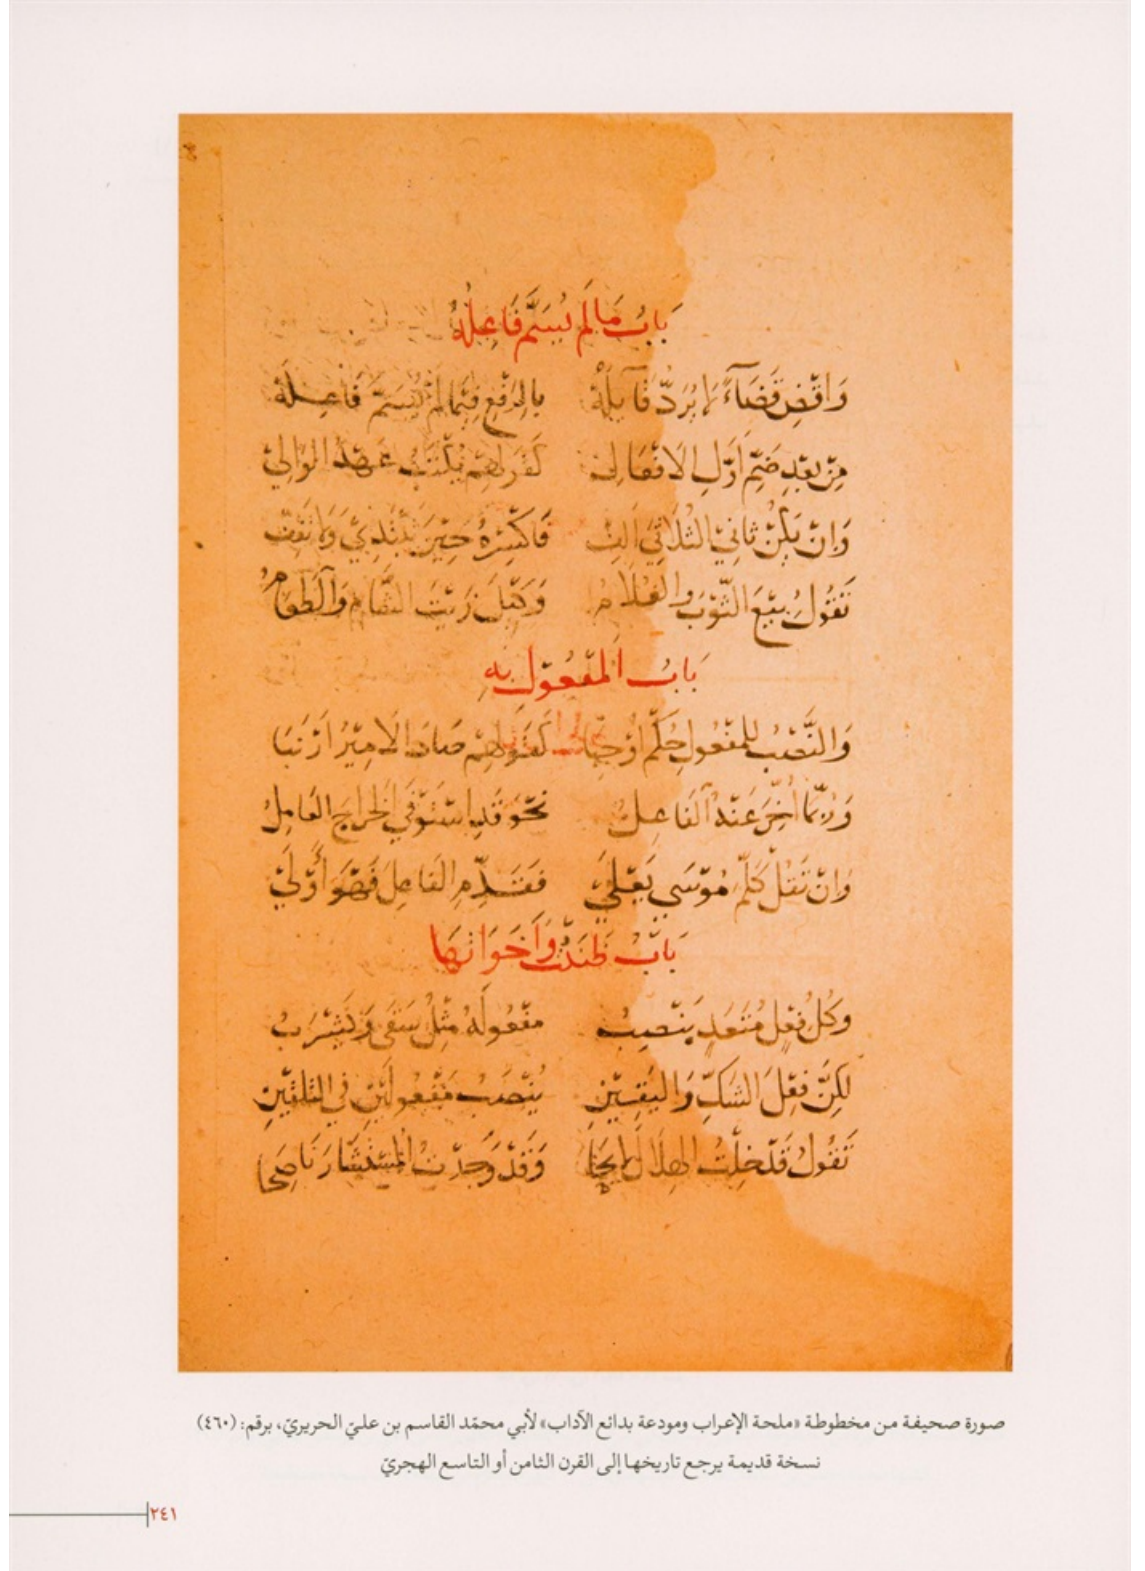 بَابُ مَا لَم يُسَمَّ فَاعِلُهُ
وَاقْضِ قَضَآءً لَا يُرَدُّ قَائِلُهْ بِالرَّفْعِ فِيمَا لَمْ يُسَمَّ فَاعِلُهْ
مِنْ بَعْدِ ضَمِّ أَوَّلِ الْأَفْعَالِ كَقَولِهِمْ يُكْتَبُ عَهْدُ الْوَالِي
وَإِنْ يَكُنْ ثَانِي الثُّلَاثِيِّ أَلِفْ فَاكْسِرْهُ حِينَ تَبْتَدِي وَلَا تَقِفْ
تَقُولُ بِيْعَ الثَّوْبُ وَالْغُلَامُ وَكِيْلَ زَيْتُ الشَّامِ وَالطَّعَامُ
بَابُ الْمَفْعُولِ بِهِ
وَالنَّصْبُ لِلْمَفْعُولِ حُكْمٌ أُوجِبَا كَقَوْلِهِمْ صَادَ الْأَمِيْرُ أَرْنَبَا
وَرُبَّمَا أُخِّرَ عَنْهُ الْفَاعِلُ نَحْوُ قَدِ اسْتَوْفَى الْخَرَاجَ الْعَامِلُ
وَإِنْ تَقُلْ كَلَّمَ مُوْسَى يَعْلَى فَقَدِّمِ الْفَاعِلَ فَهْوَ أَوْلَى
بَابُ ظَنَنْتُ وَأَخَوَاتِهَا
وَكُلُّ فِعْلٍ مُتَعَدٍّ يَنْصِبُ مَفْعُولَهُ مِثْلُ سَقَى وَيَشْرَبُ
لَكِنَّ فِعْلَ الشَّكِّ وَالْيَقِيْنِ يَنْصِبُ مَفْعُولَيْنِ فِي التَّلْقِيْنِ
تَقُولُ قَدْ خِلْتُ الْهِلَالَ لَائِحَا وَقَدْ وَجَدْتُ الْمُسْتَشَارَ نَاصِحَا
صورة صحيفة من مخطوطة «ملحة الإعراب ومودعة بدائع الآداب» لأبي محمّد القاسم بن عليّ الحريريّ، برقم: (٤٦٠)
نسخة قديمة يرجع تاريخها إلى القرن الثامن أو التاسع الهجريّ
٢٤١